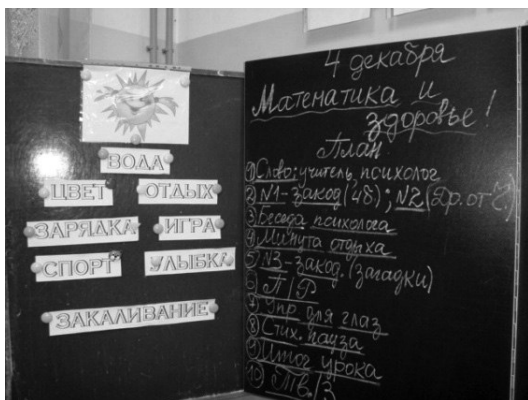 ВОДА
ЦВЕТ ОТДЫХ
ЗАРЯДКА ИГРА
СПОРТ УЛЫБКА
ЗАКАЛИВАНИЕ
4 декабря
Математика и
здоровье!
План
① Слово: учитель, психолог
② N1 - закод (48); N2 (Др. от
③ Беседа психолога
④ Минута отдыха
⑤ N3 - закод. (загадки)
⑥ П/Р
⑦ Упр. для глаз
⑧ Стих. пауза
⑨ Итог урока
⑩ Тв./З